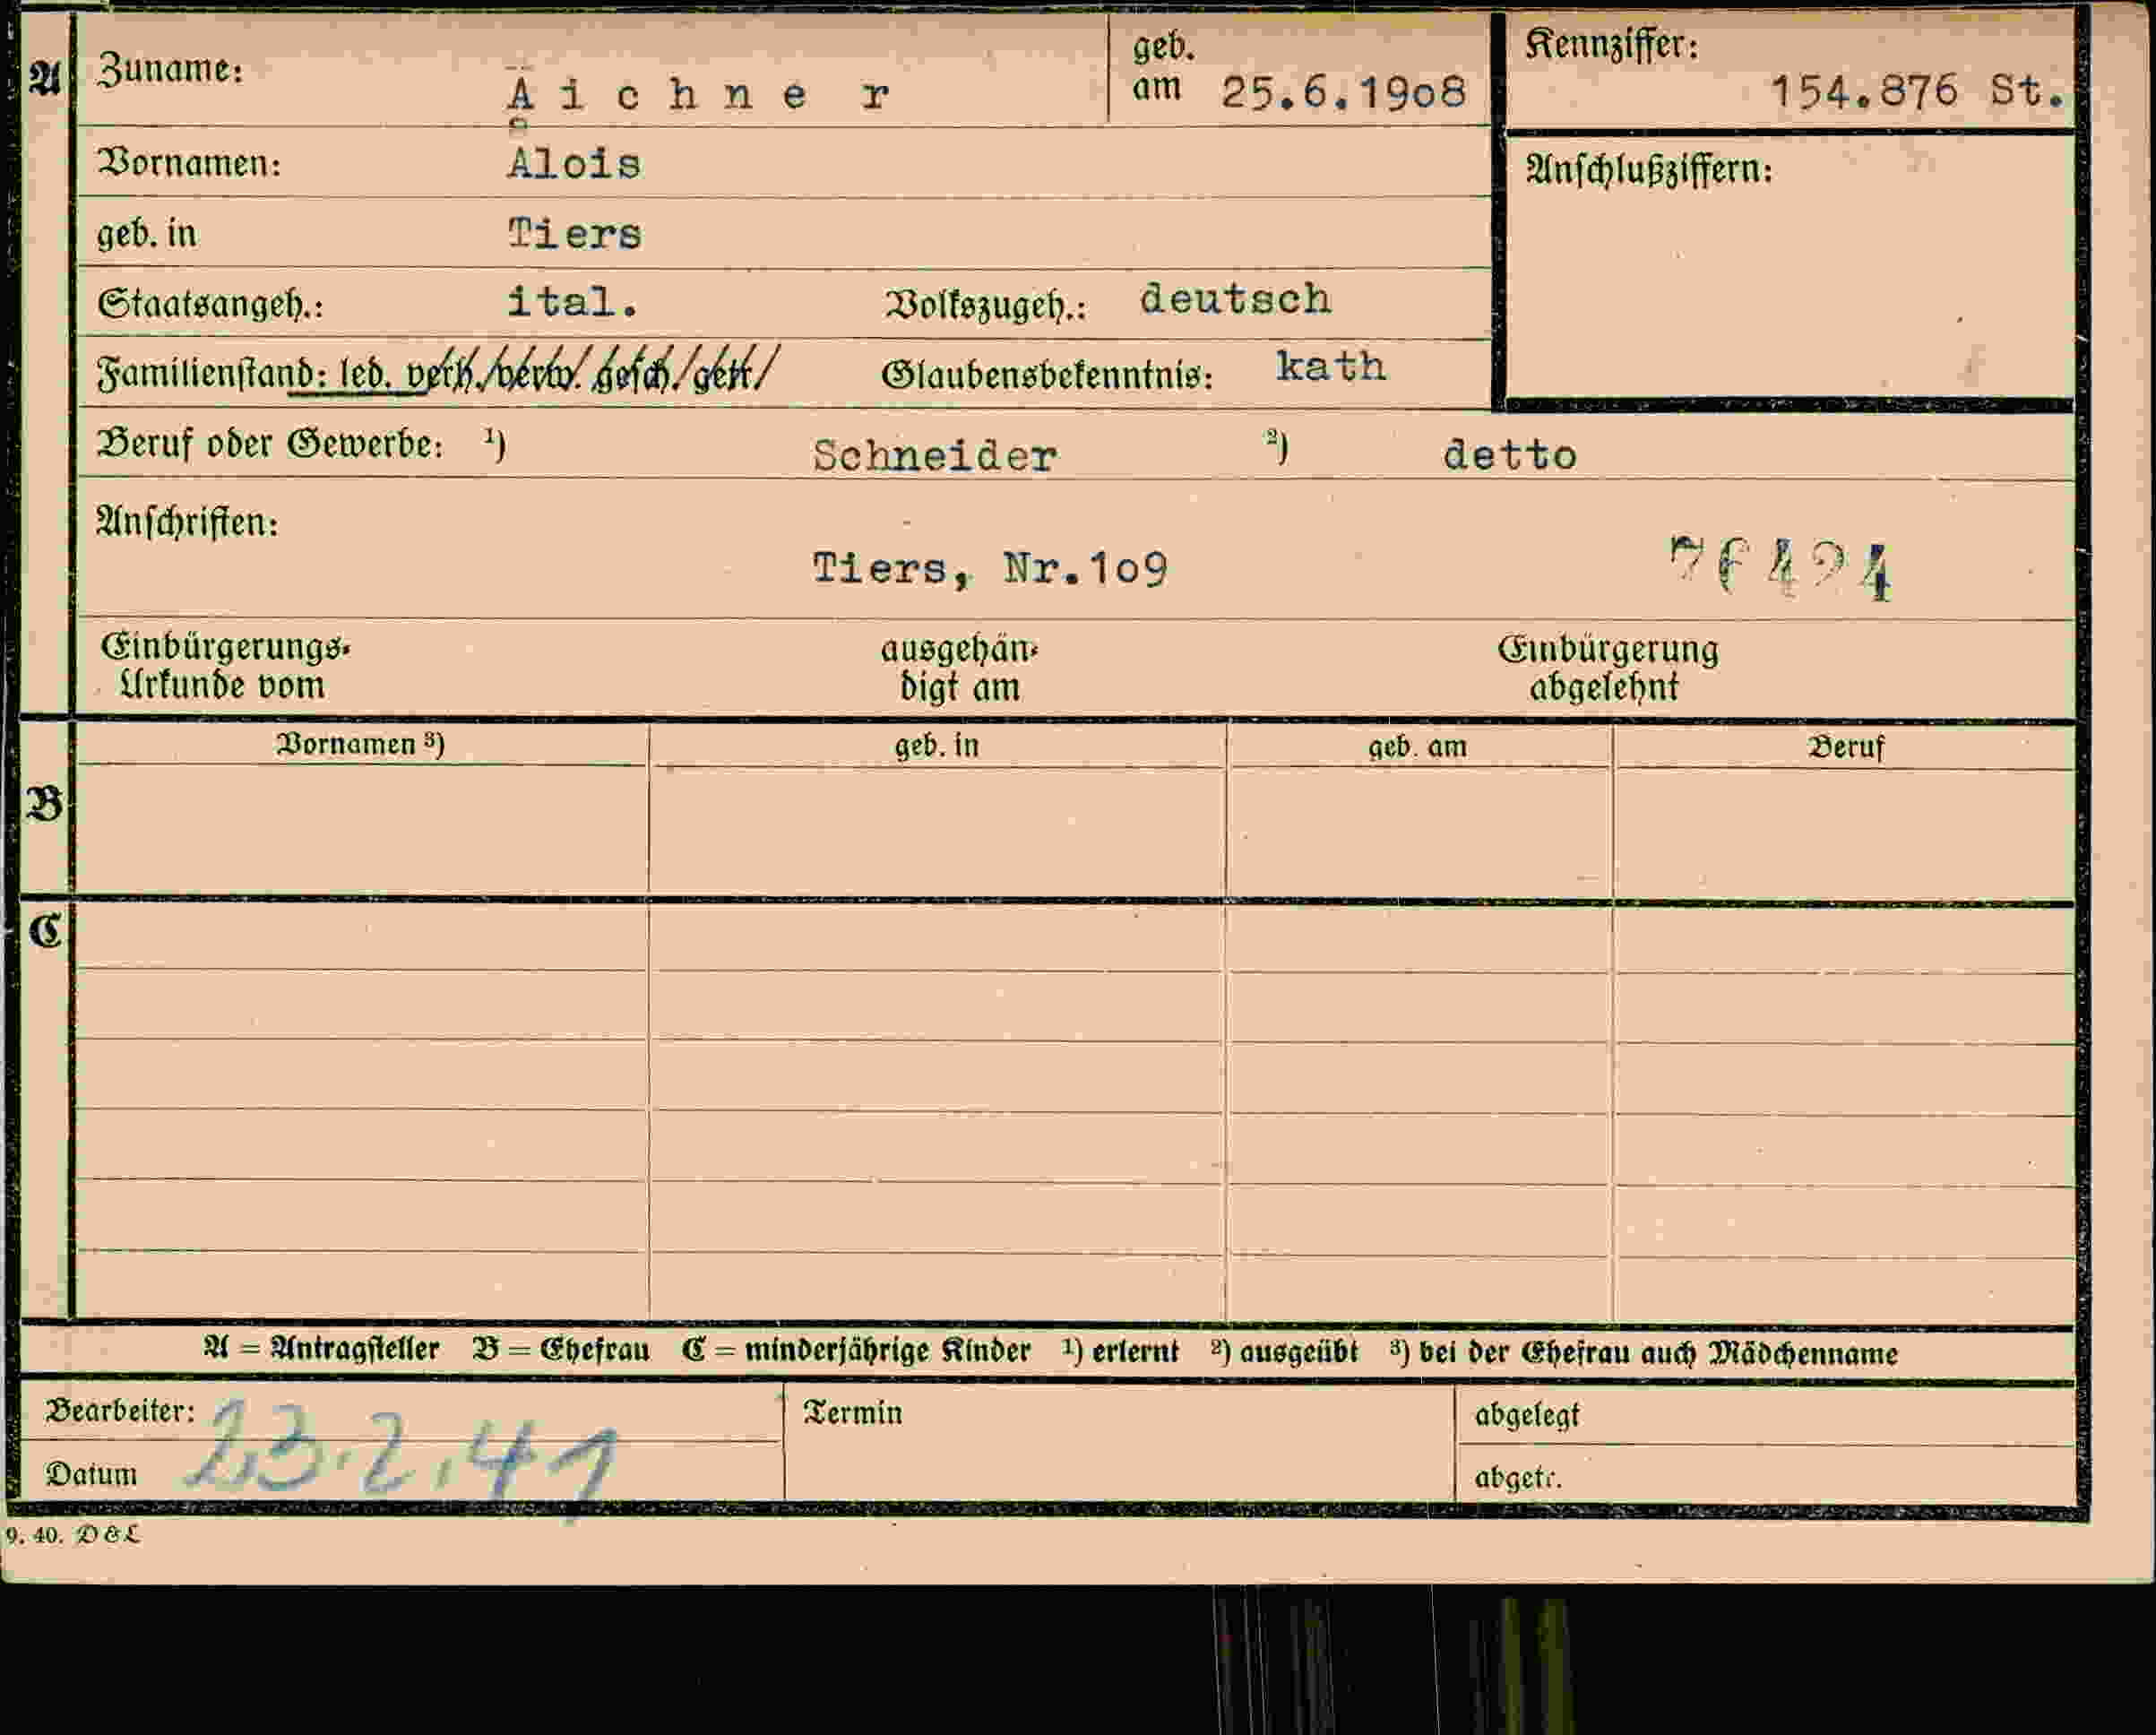 A Zuname: Aichner geb. am 25.6.19o8 Kennziffer: 154.876 St.
Vornamen: Alois Anschlußziffern:
geb. in Tiers
Staatsangeh.: ital. Volkszugeh.: deutsch
Familienstand: led. verh. verw. gesch. getr. Glaubensbekenntnis: kath
Beruf oder Gewerbe: 1) Schneider 2) detto
Anschriften:
Tiers, Nr.1o9
Einbürgerungs- ausgehän- Einbürgerung
Urkunde vom digt am abgelehnt
B Vornamen 3) geb. in geb. am Beruf
C
A = Antragsteller B = Ehefrau C = minderjährige Kinder 1) erlernt 2) ausgeübt 3) bei der Ehefrau auch Mädchenname
Bearbeiter: Termin abgelegt
Datum 23.2.41 abgetr.
9. 40. D & L